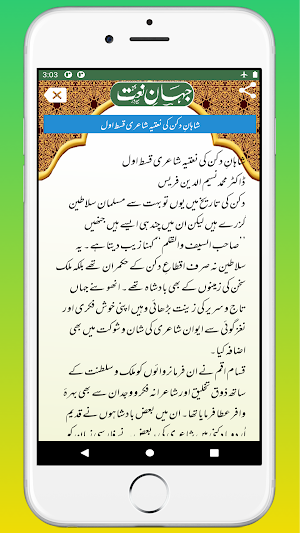 3:03
جہان نعت
شاہان دکن کی نعتیہ شاعری قسط اول
شاہان دکن کی نعتیہ شاعری قسط اول
ڈاکٹر محمد نسیم الدین فریس
دکن کی تاریخ میں یوں تو بہت سے مسلمان سلاطین
گزرے ہیں لیکن ان میں چند ہی ایسے ہیں جنھیں
”صاحب السیف والقلم“ کہنا زیب دیتا ہے۔ یہ
سلاطین نہ صرف اقطاع دکن کے حکمران تھے بلکہ ملک
سخن کی زمینوں کے بھی بادشاہ تھے۔ انھوں نے جہاں
تاج و سریر کی زینت بڑھائی وہیں اپنی خوش فکری اور
نغز گوئی سے ایوان شاعری کی شان و شوکت میں بھی
اضافہ کیا۔
قسام اقم نے ان فرمانرواؤں کو ملک و سلطنت کے
ساتھ ذوق تخلیق اور شاعرانہ فکر و وجدان سے بھی بہرۂ
وافر عطا فرمایا تھا۔ ان میں بعض بادشاہوں نے قدیم